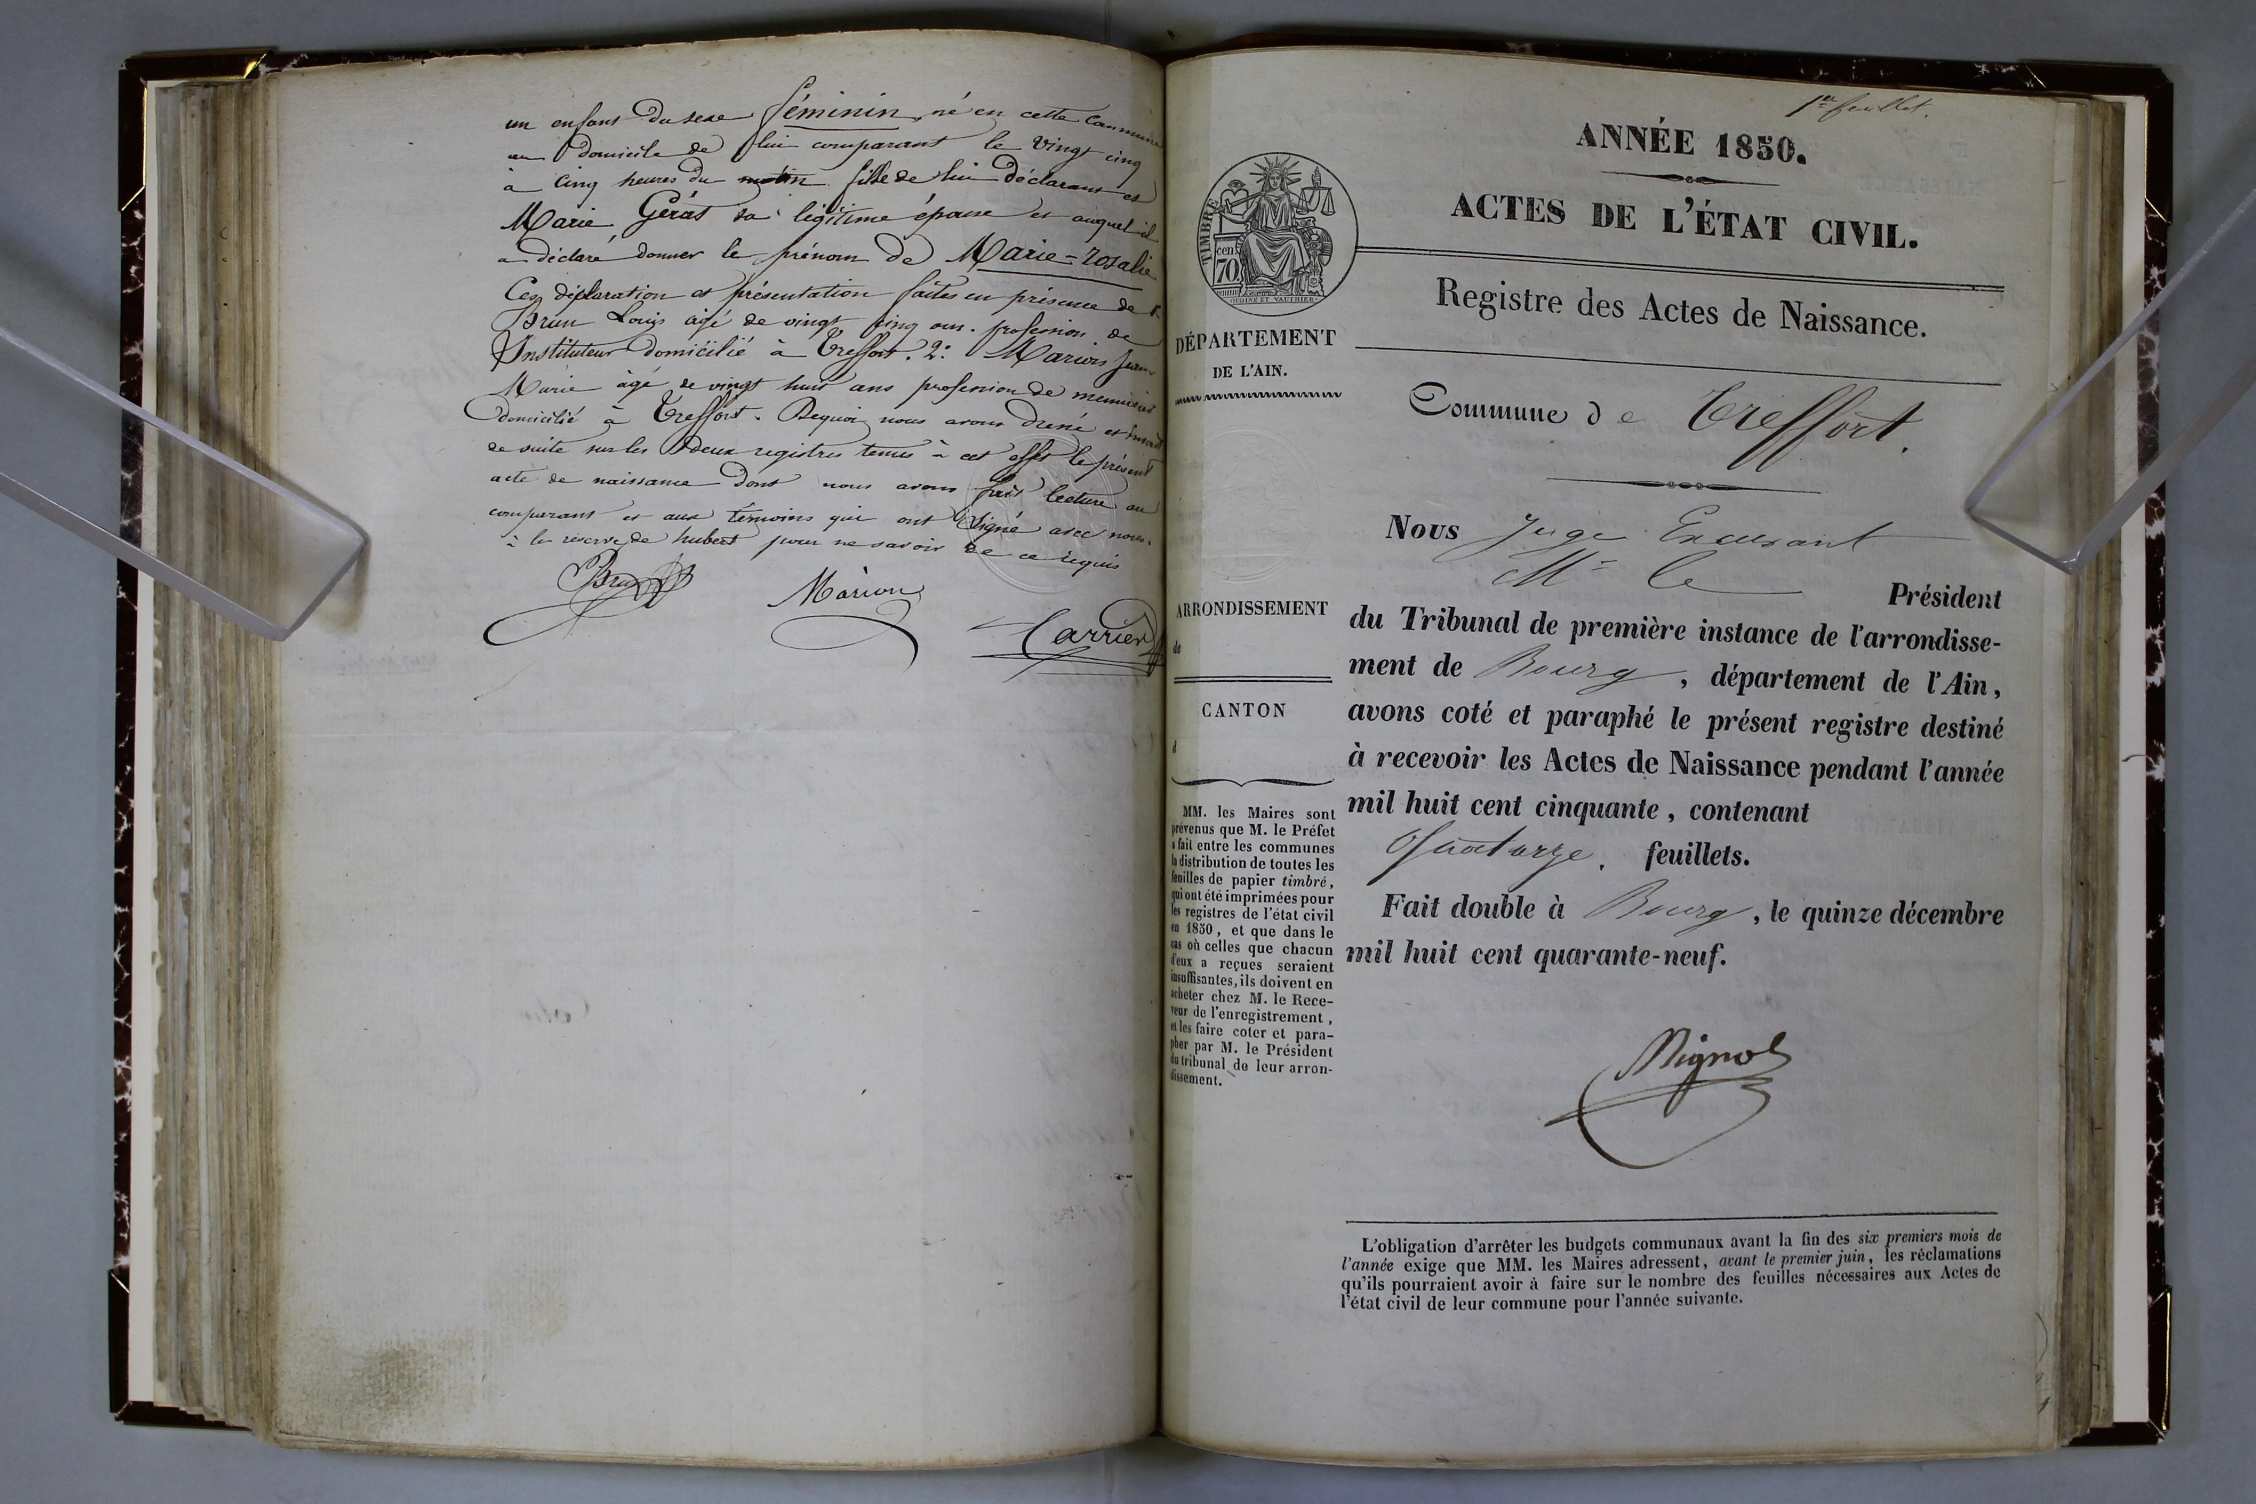 un enfant du sexe féminin, né en cette Commune
au domicile de lui comparant le vingt cinq
à cinq heures du matin fille de lui déclarant et
Marie Gérás sa légitime épouse et auquel il
a déclaré donner le prénom de Marie=rosalie
Ces déclaration et présentation faites en présence de 1º
Brun Louis agé de vingt cinq ans. profession de
Instituteur domicilié à Treffort. 2º Marion Jean
Marie âgé de vingt huit ans profession de menuisier
domicilié à Treffort. Dequoi nous avons dressé et
de suite sur les deux registres tenus à cet effet le présent
acte de naissance dont nous avons fait lecture au
comparant et aux témoins qui ont signé avec nous.
à la réserve de hubert pour ne savoir de ce requis
Brun
Marion
Carrier
1er feuillet.
ANNÉE 1850.
ACTES DE L'ÉTAT CIVIL.
Registre des Actes de Naissance.
Commune de Treffort.
TIMBRE
cen
70
OUDINÉ ET VAUTHIER
DÉPARTEMENT
DE L'AIN.
ARRONDISSEMENT
de
CANTON
d
MM. les Maires sont
prévenus que M. le Préfet
a fait entre les communes
la distribution de toutes les
feuilles de papier timbré,
qui ont été imprimées pour
les registres de l'état civil
en 1850, et que dans le
cas où celles que chacun
d'eux a reçues seraient
insuffisantes, ils doivent en
acheter chez M. le Rece-
veur de l'enregistrement,
et les faire coter et para-
pher par M. le Président
du tribunal de leur arron-
dissement.
Nous Juge
Mr le
Président
du Tribunal de première instance de l'arrondisse-
ment de Bourg, département de l'Ain,
avons coté et paraphé le présent registre destiné
à recevoir les Actes de Naissance pendant l'année
mil huit cent cinquante, contenant
Quatorze. feuillets.
Fait double à Bourg, le quinze décembre
mil huit cent quarante-neuf.
L'obligation d'arrêter les budgets communaux avant la fin des six premiers mois de
l'année exige que MM. les Maires adressent, avant le premier juin, les réclamations
qu'ils pourraient avoir à faire sur le nombre des feuilles nécessaires aux Actes de
l'état civil de leur commune pour l'année suivante.